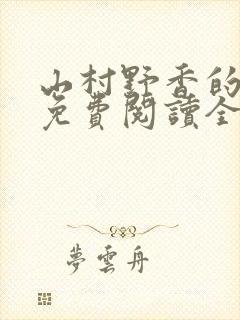 山村野香的
免費閱讀全
夢雲舟